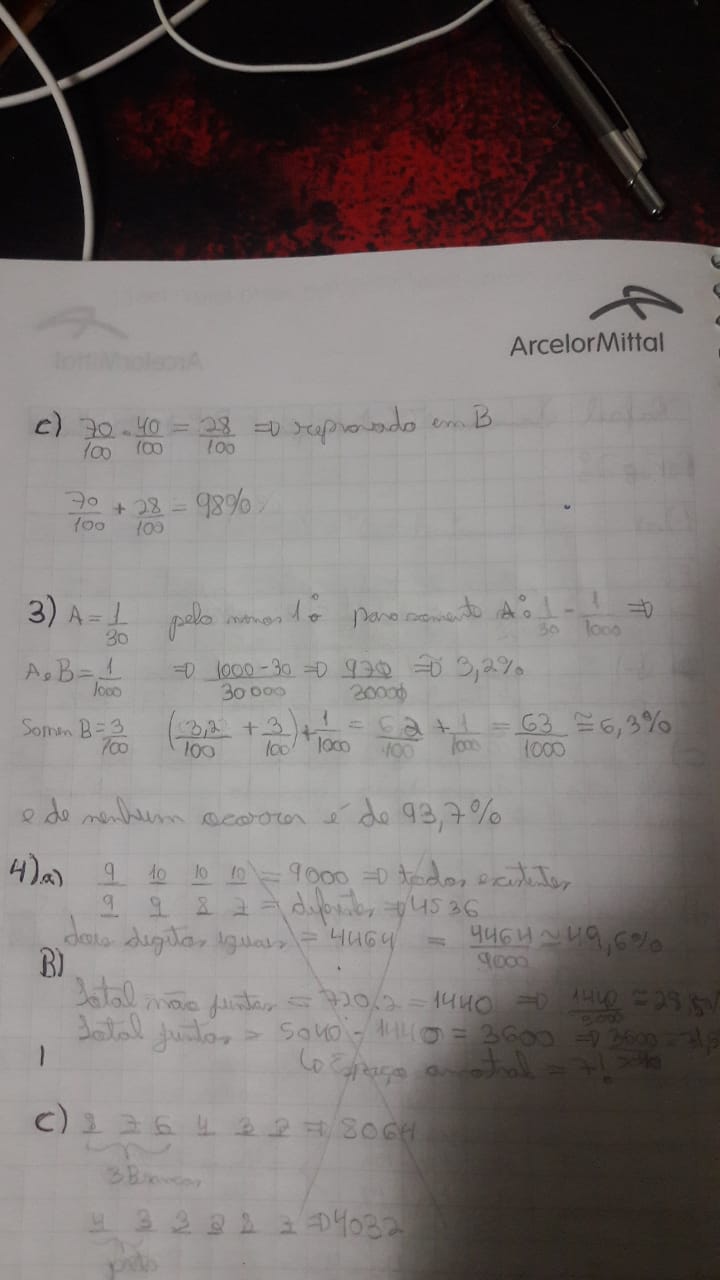 ArcelorMittal
c) 70/100 . 40/100 = 28/100 => reprovado em B
70/100 + 28/100 = 98%
3) A = 1/30 pelo menos 1: para somente A: 1/30 - 1/1000 =>
A e B = 1/1000 => 1000-30/30000 => 970/30000 ≅ 3,2%
Somen B = 3/100 (3,2/100 + 3/100) + 1/1000 = 6,2/100 + 1/1000 = 63/1000 ≅ 6,3%
e de nenhum ocorrer é de 93,7%
4) a) 9 10 10 10 = 9000 => todos existentes
9 9 8 7 = diferentes => 4536
dois digitos iguais = 4464 = 4464/9000 ≃ 49,6%
B)
Total não juntas = 720.2 = 1440 => 1440
Total juntas = 5040 - 1440 = 3600 => 3600
Espaço amostral = 7!
C) 8 7 6 4 3 2 => 8064
3 Brancas
4 3 3 2 2 => 4032